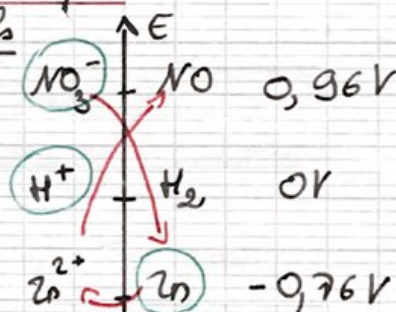 E
NO₃⁻ NO 0,96V
H⁺ H₂ 0V
Zn²⁺ Zn -0,76V